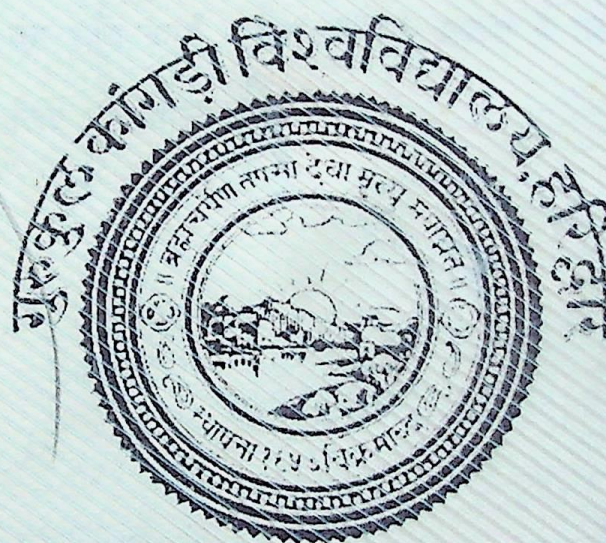 गुरुकुल कांगड़ी विश्वविद्यालय, हरिद्वार
॥ ब्रह्मचर्येण तपसा देवा मृत्यु मपाघ्नत ॥
स्थापना १९५७ विक्रमाब्द